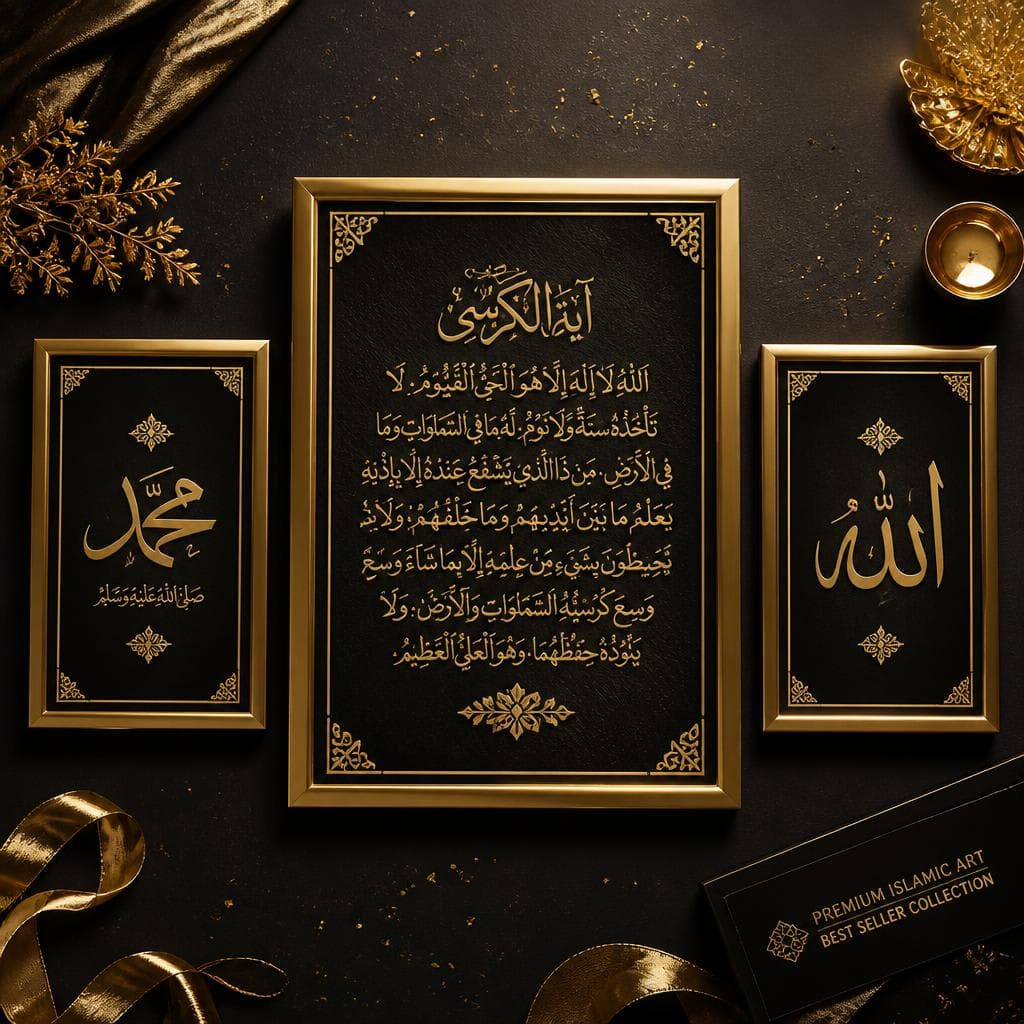 آية الكرسي
اَللّٰهُ لَا إِلٰهَ إِلَّا هُوَ ٱلْحَيُّ ٱلْقَيُّومُ. لَا
تَأْخُذُهُ سِنَةٌ وَلَا نَوْمٌ. لَهُ مَا فِي السَّمَاوَاتِ وَمَا
فِي الْأَرْضِ. مَن ذَا الَّذِي يَشْفَعُ عِندَهُ إِلَّا بِإِذْنِهِ
يَعْلَمُ مَا بَيْنَ أَيْدِيهِمْ وَمَا خَلْفَهُمْ. وَلَا
يُحِيطُونَ بِشَيْءٍ مِنْ عِلْمِهِ إِلَّا بِمَا شَاءَ وَسِعَ
وَسِعَ كُرْسِيُّهُ السَّمَاوَاتِ وَالْأَرْضَ. وَلَا
حِفْظُهُمَا. وَهُوَ الْعَلِيُّ الْعَظِيمُ.
محمد
صلى الله عليه وسلم
الله
PREMIUM ISLAMIC ART
BEST SELLER COLLECTION